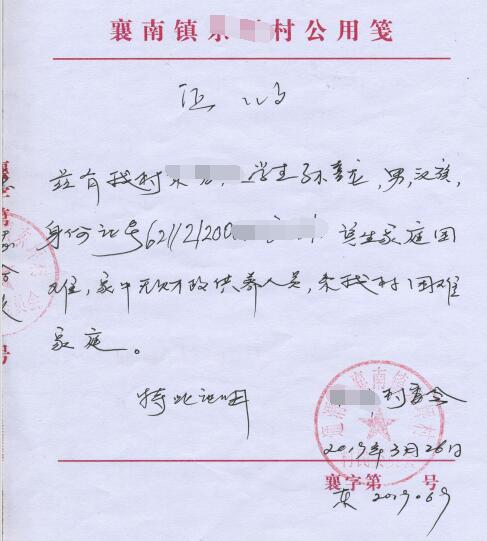 襄南镇东 村公用笺
证 明
兹有我村 学生孙彦龙,男,汉族,
身份证号62112120 该生家庭困
难,家中无财政供养人员,系我村困难
家庭。
特此证明
村委会
2019年3月26日
襄字第 号
东 2019.069